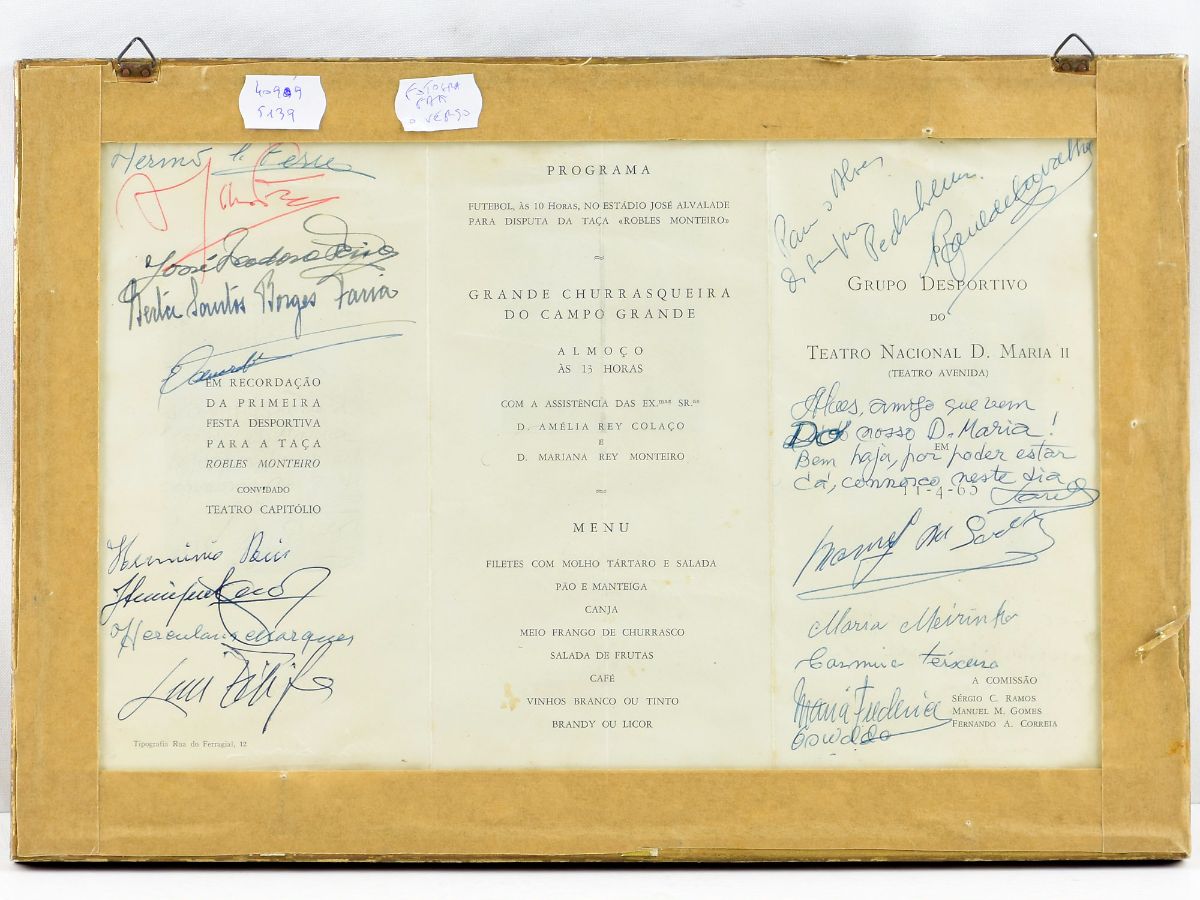 40909
5139
FOTOGRA
FAR
O VERSO
José Teodoro
Berta Santos Borges Faria
EM RECORDAÇÃO
DA PRIMEIRA
FESTA DESPORTIVA
PARA A TAÇA
ROBLES MONTEIRO
CONVIDADO
TEATRO CAPITÓLIO
Herculano Marques
Luis Filipe
Tipografia Rua do Ferragial, 12
PROGRAMA
FUTEBOL, ÀS 10 HORAS, NO ESTÁDIO JOSÉ ALVALADE
PARA DISPUTA DA TAÇA «ROBLES MONTEIRO»
≈
GRANDE CHURRASQUEIRA
DO CAMPO GRANDE
ALMOÇO
ÀS 13 HORAS
COM A ASSISTÊNCIA DAS EX.mas SR.as
D. AMÉLIA REY COLAÇO
E
D. MARIANA REY MONTEIRO
≈
MENU
FILETES COM MOLHO TÁRTARO E SALADA
PÃO E MANTEIGA
CANJA
MEIO FRANGO DE CHURRASCO
SALADA DE FRUTAS
CAFÉ
VINHOS BRANCO OU TINTO
BRANDY OU LICOR
Para o Alves
GRUPO DESPORTIVO
DO
TEATRO NACIONAL D. MARIA II
(TEATRO AVENIDA)
Alves, amigo que vem
Do nosso D. Maria!
EM
Bem haja, por poder estar
cá, connosco neste dia
11-4-65
Maria Meirinho
Casmiro Teixeira
A COMISSÃO
SÉRGIO C. RAMOS
MANUEL M. GOMES
FERNANDO A. CORREIA
Maria Frederica
Oswaldo